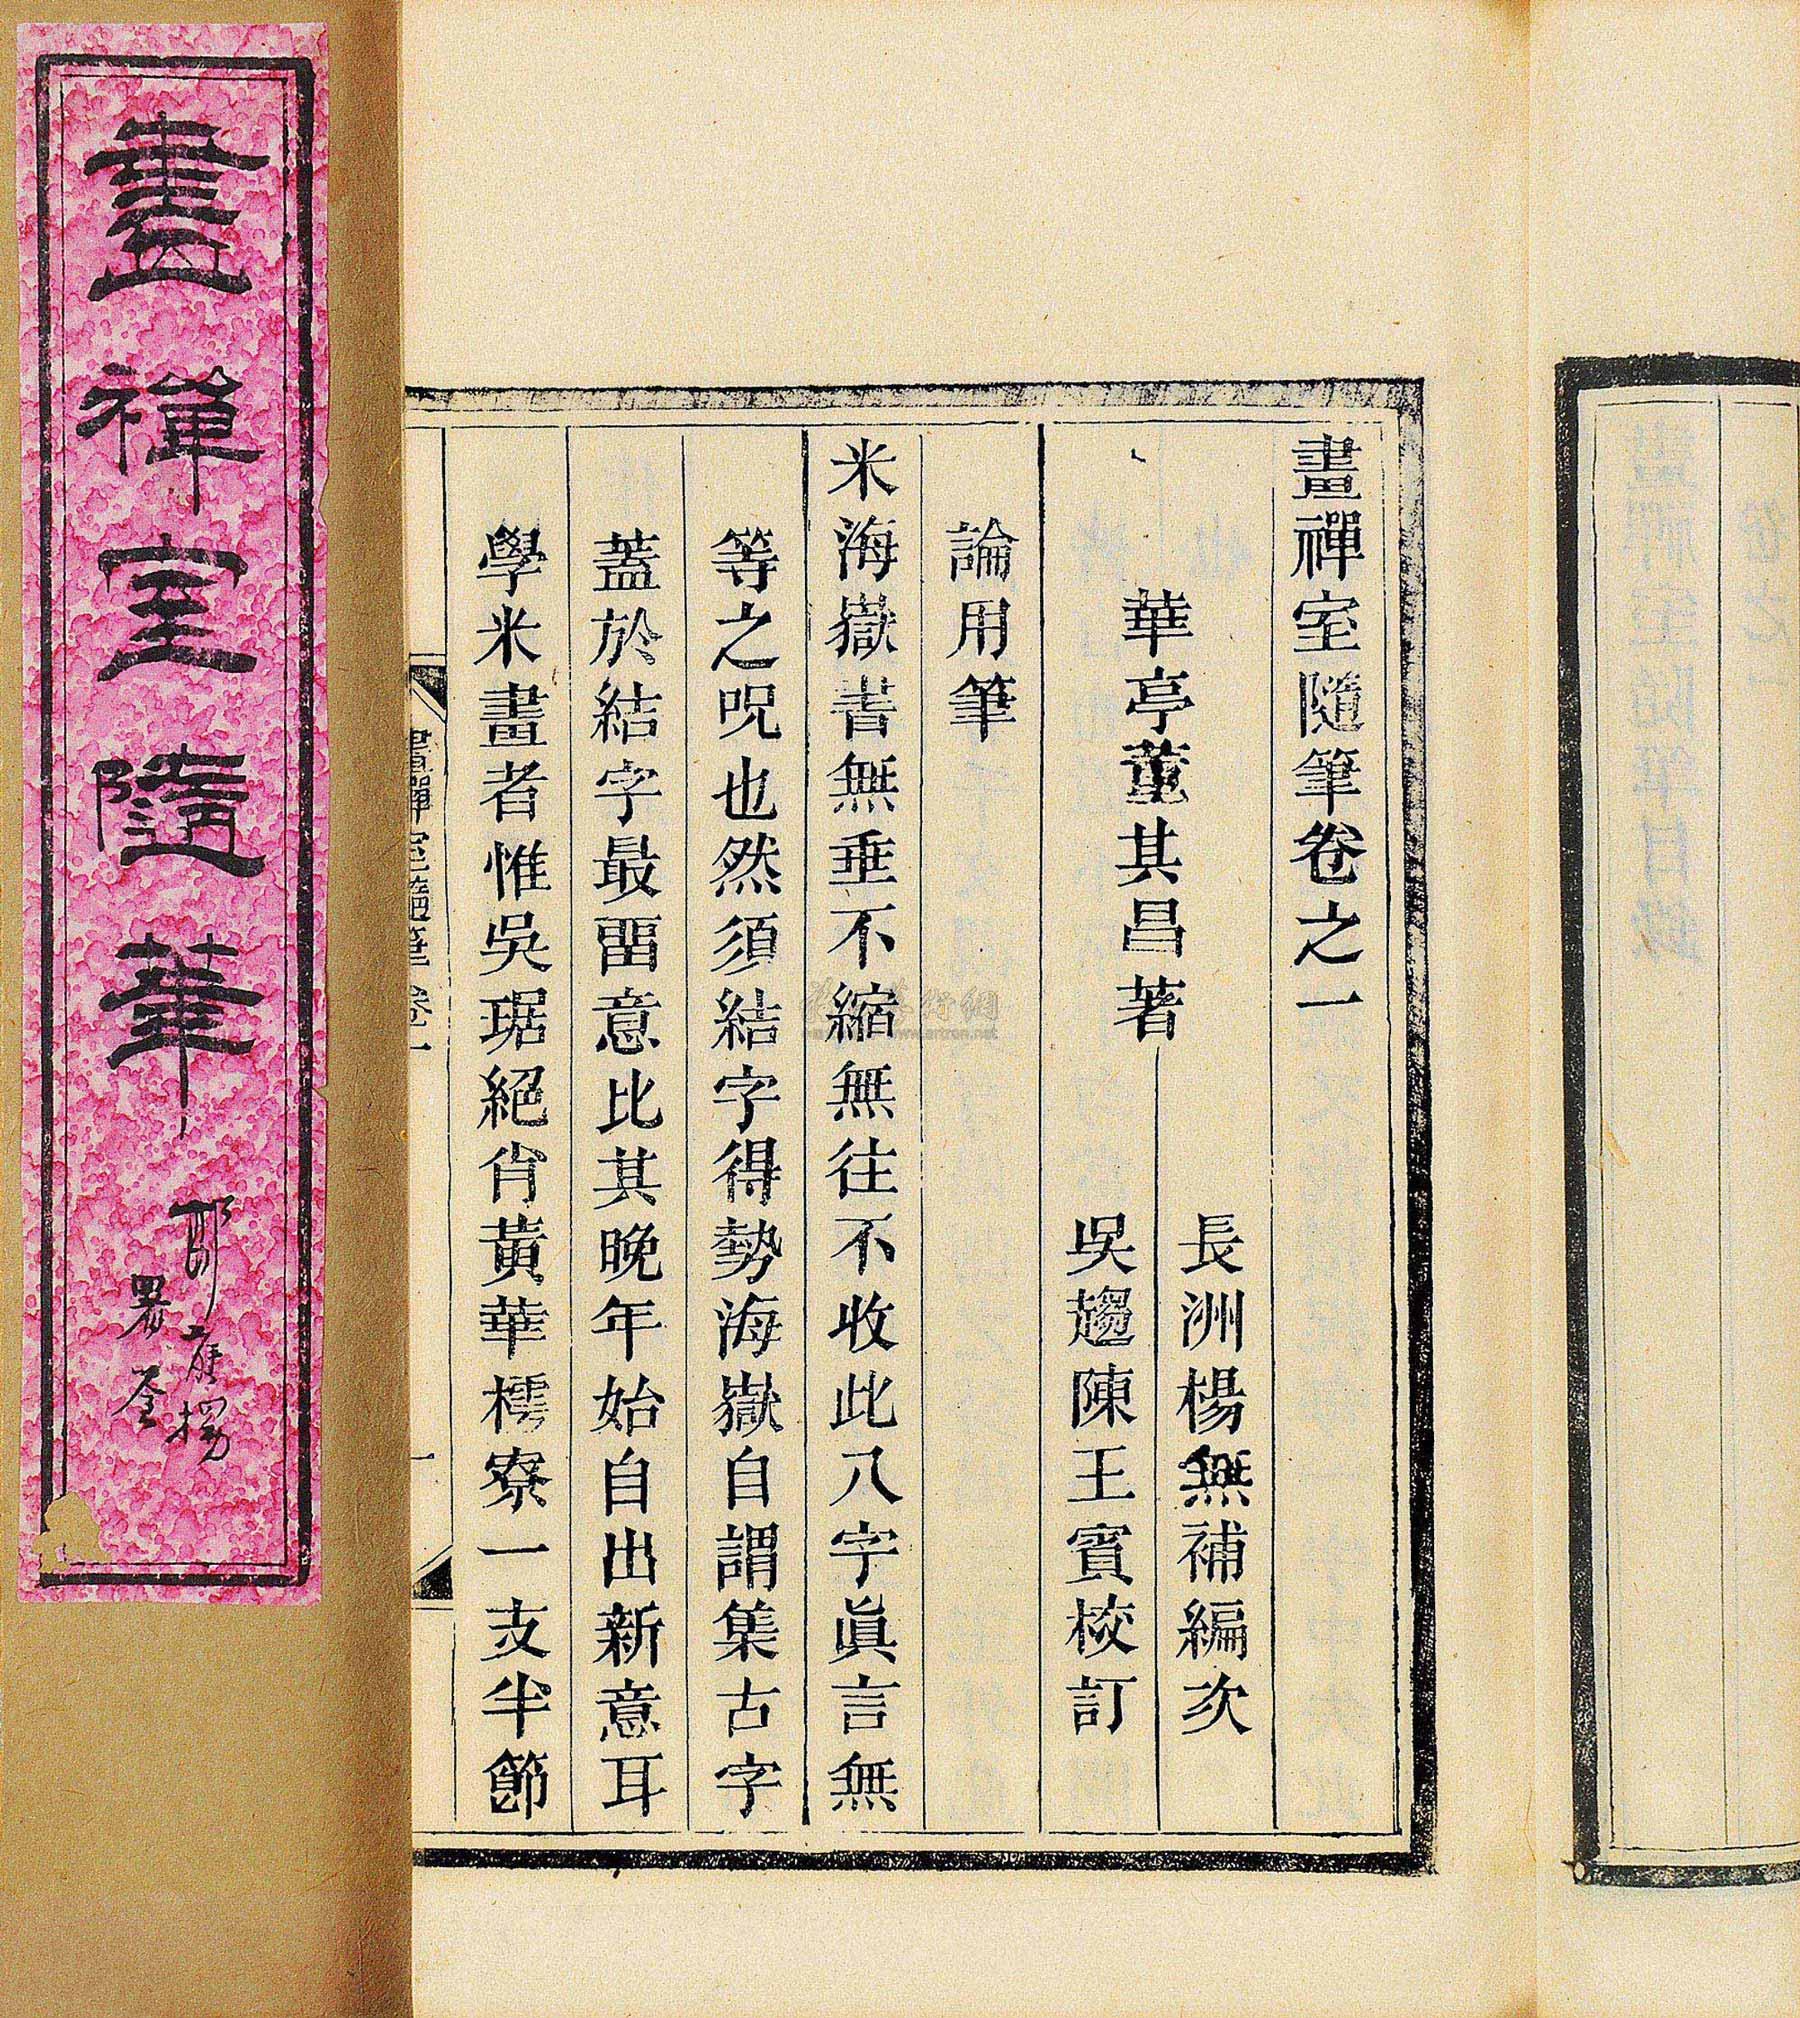 畫禪室隨筆卷之一
華亭董其昌著
長洲楊無補編次
吳趨陳王賓校訂
論用筆
米海嶽書無垂不縮無往不收此八字眞言無
等之呪也然須結字得勢海嶽自謂集古字
蓋於結字最畱意比其晚年始自出新意耳
學米畫者惟吳琚絕肖黃華樗寮一支半節
畫禪室隨筆 卷一
一
畫禪室隨筆
署